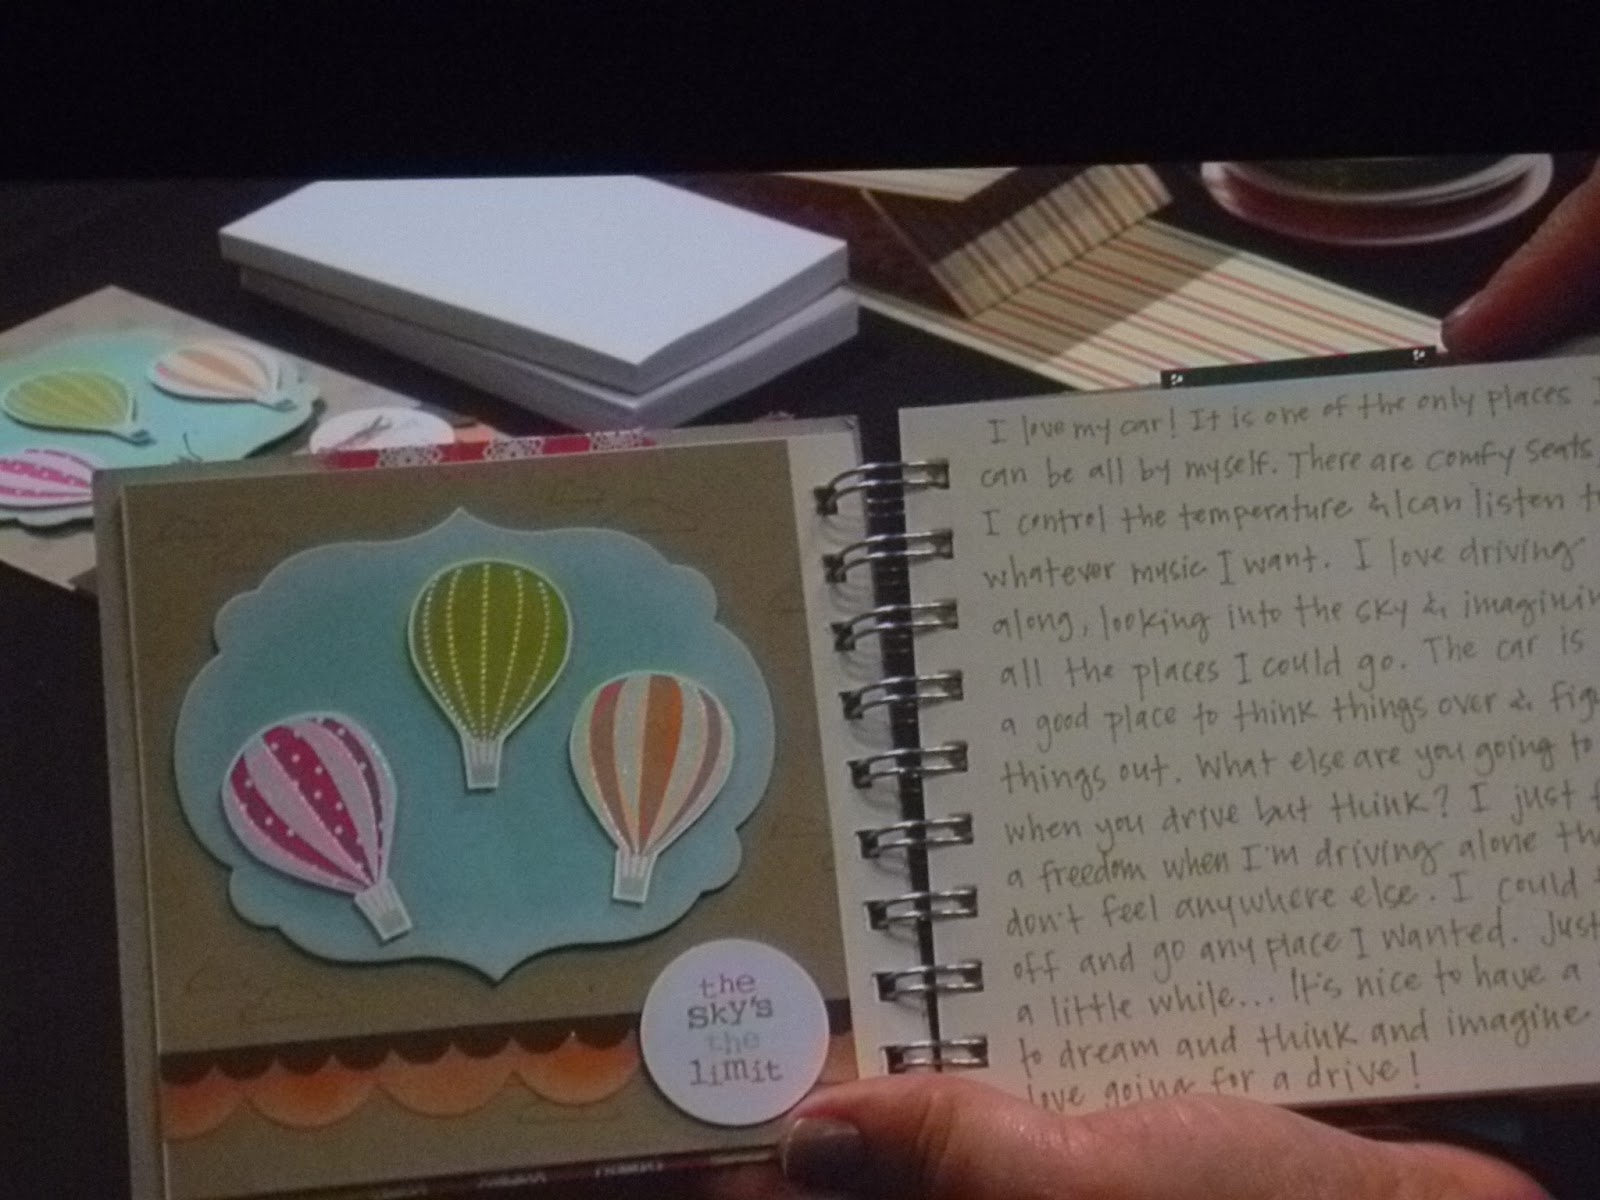 the
sky's
the
limit
I love my car! It is one of the only places I
can be all by myself. There are comfy seats,
I control the temperature & I can listen to
whatever music I want. I love driving
along, looking into the sky & imagining
all the places I could go. The car is
a good place to think things over &
things out. What else are you going to
when you drive but think? I just
a freedom when I'm driving alone
don't feel anywhere else. I could
off and go any place I wanted. Just
a little while... It's nice to have a
to dream and think and imagine
love going for a drive!